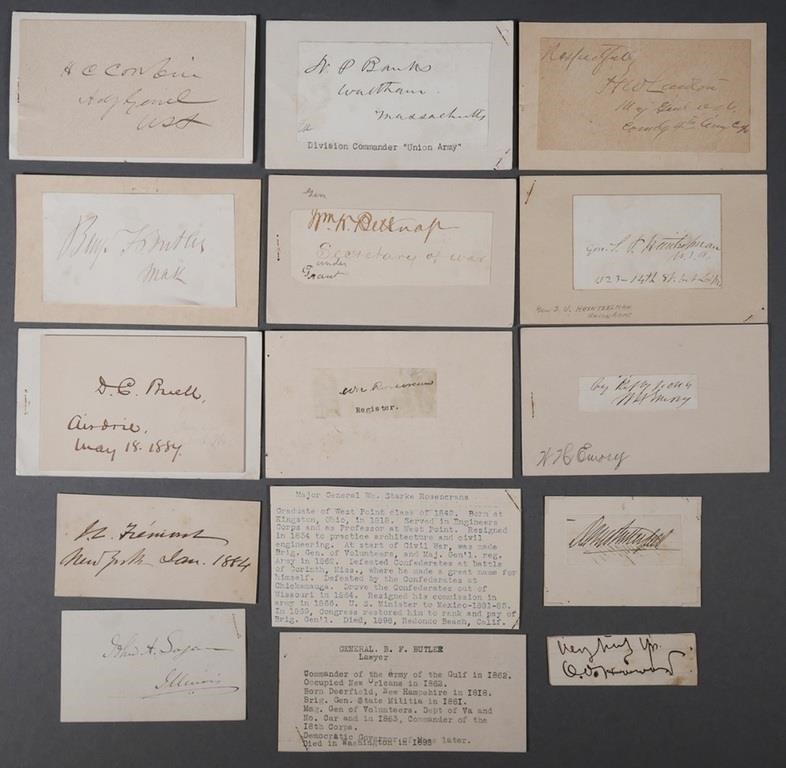 H C Corbin
Adj Genl
USA
N. P. Banks
Waltham
Massachusetts
Division Commander "Union Army"
Respectfully
Maj Genl
Comdg 4th Army
Benj F Butler
Mass
Gen
Wm. W. Belknap
Secretary of war
under
Grant
Gen. S. P. Heintzelman
U.S.A.
1123-14th St.
Gen S. P. HEINTZELMAN
D. C. Buell,
Airdrie,
May 18. 1887.
Wm Rosecrans
Register.
W H Emory
W H Emory
J. C. Frémont
New York Jan. 1884
Major General Wm. Starke Rosencrans
Graduate of West Point class of 1842. Born at
Kingston, Ohio, in 1819. Served in Engineers
Corps and as Professor at West Point. Resigned
in 1854 to practice architecture and civil
engineering. At start of Civil War, was made
Brig. Gen. of Volunteers, and Maj. Gen'l. reg.
Army in 1862. Defeated Confederates at battle
of Corinth, Miss., where he made a great name for
himself. Defeated by the Confederates at
Chickamauga. Drove the Confederates out of
Missouri in 1864. Resigned his commission in
army in 1866. U. S. Minister to Mexico-1881-85.
In 1889, Congress restored him to rank and pay of
Brig. Gen'l. Died, 1898, Redondo Beach, Calif.
John A. Logan
Illinois
GENERAL. B. F. BUTLER
Lawyer
Commander of the Army of the Gulf in 1862.
Occupied New Orleans in 1862.
Born Deerfield, New Hampshire in 1818.
Brig. Gen. State Militia in 1861.
Mag. Gen of Volunteers. Dept of Va and
No. Car and in 1863, Commander of the
18th Corps.
Democratic Governor of Mass later.
Died in Washington in 1893
Very truly yrs.
O. O. Howard